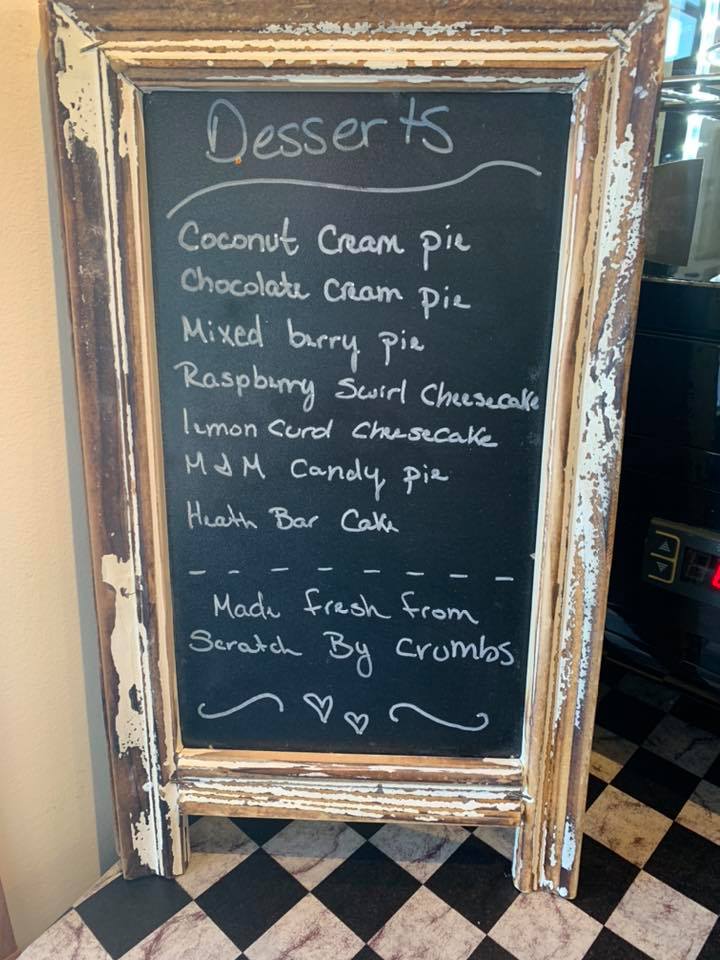 Desserts
Coconut Cream pie
Chocolate Cream pie
Mixed berry pie
Raspberry Swirl Cheesecake
lemon Curd Cheesecake
M & M Candy pie
Heath Bar Cake
Made fresh from
Scratch By Crumbs